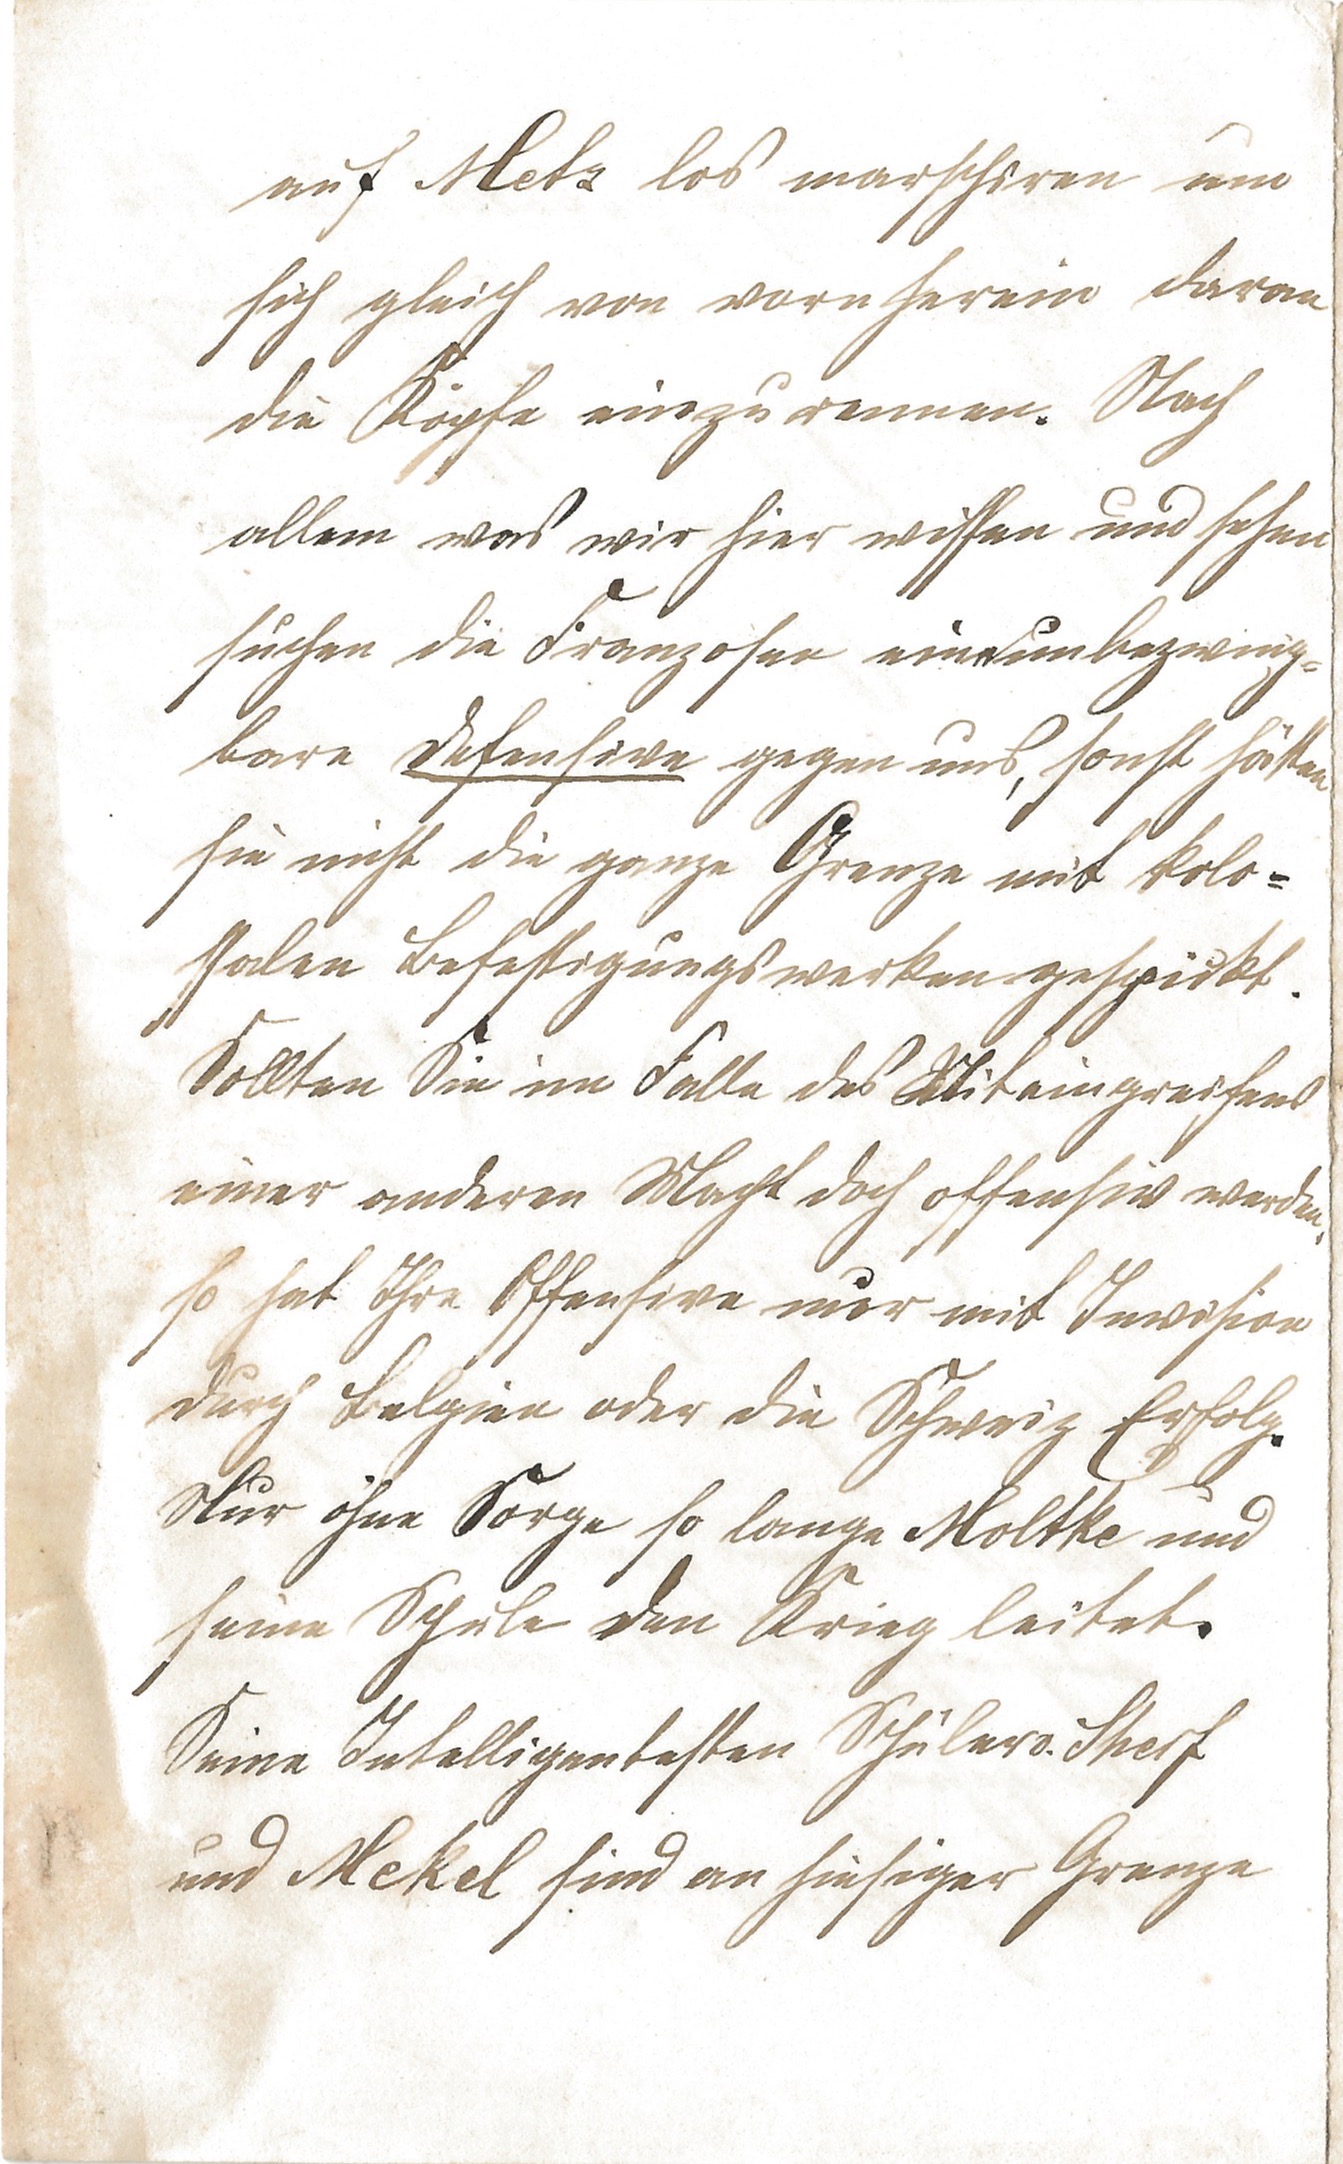 auf Metz los marschiren um
sich gleich von vornherein daran
die Köpfe einzurennen. Nach
allem was wir hier wissen und sehen
suchen die Franzosen eine unbezwing=
bare Defensive gegen uns, sonst hätten
sie nicht die ganze Grenze mit kolo=
ssalen Befestigungswerken gespickt.
Sollten Sie im Falle des Miteingreifens
einer anderen Macht doch offensiv werden,
so hat Ihre Offensive nur mit Invasion
durch Belgien oder die Schweiz Erfolg.
Nur ohne Sorge so lange Moltke und
seine Schule den Krieg leitet.
Seine Intelligentesten Schüler v. Sherf
und Mekel sind an hiesiger Grenze